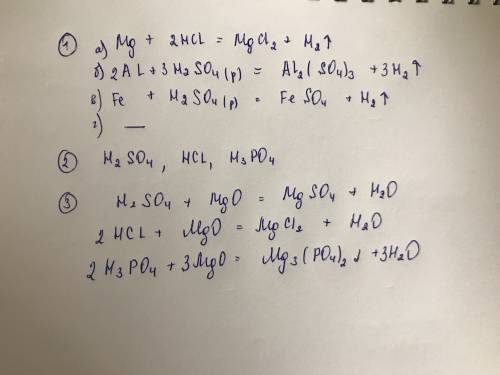 ① а) Mg + 2HCL = MgCl₂ + H₂↑
б) 2AL + 3H₂SO₄(р) = AL₂(SO₄)₃ + 3H₂↑
в) Fe + H₂SO₄(р) = FeSO₄ + H₂↑
г) —
② H₂SO₄, HCL, H₃PO₄
③ H₂SO₄ + MgO = MgSO₄ + H₂O
2HCL + MgO = MgCl₂ + H₂O
2H₃PO₄ + 3MgO = Mg₃(PO₄)₂↓ + 3H₂O